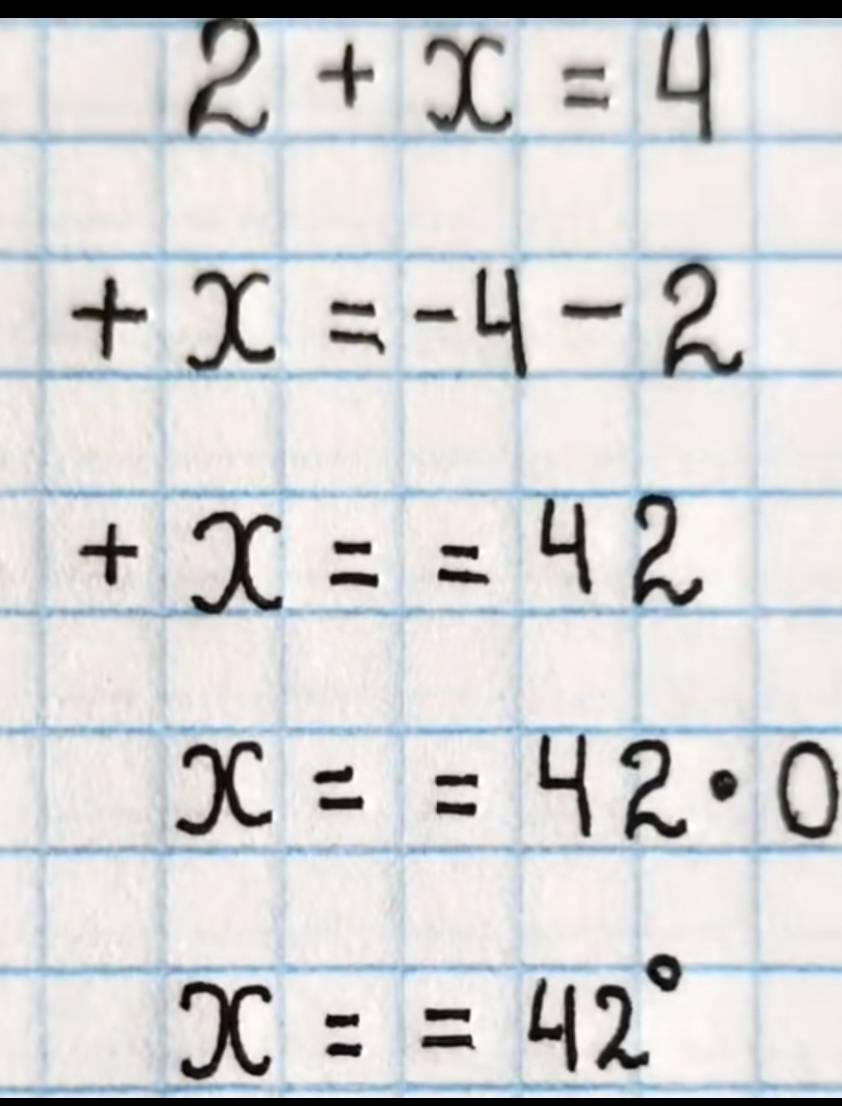 2 + x = 4
+ x = -4 - 2
+ x = = 42
x = = 42 · 0
x = = 42°